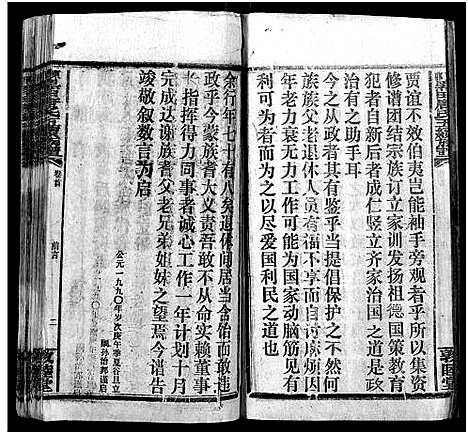 贾谊不效伯夷岂能袖手旁观者乎所以集资
修谱团结宗族订立家训发扬祖德国策教育
犯者自新后者成仁竖立齐家治国之道是政
治有之助手耳
今之从政者其有鉴乎当提倡保护之不然何
族族父老退休人员有福不享而自讨麻烦因
年老力衰无力工作可能为国家动脑筋无有
利可为也是以尽爱国利民之道也
余行年七十有八矣退休闲居当含饴而敢违
政乎今蒙族耆大义责吾敢不从命实赖董事
长指挥得力同事者诚心工作一年计划十月
完成达谢族耆父老兄弟姐妹之望焉今谱告
竣敬叙数言为启
公元一九九〇年岁次庚午季夏谷旦立
嗣孙治邦谨启
卷首
前言
二
敦睦堂
敦睦堂